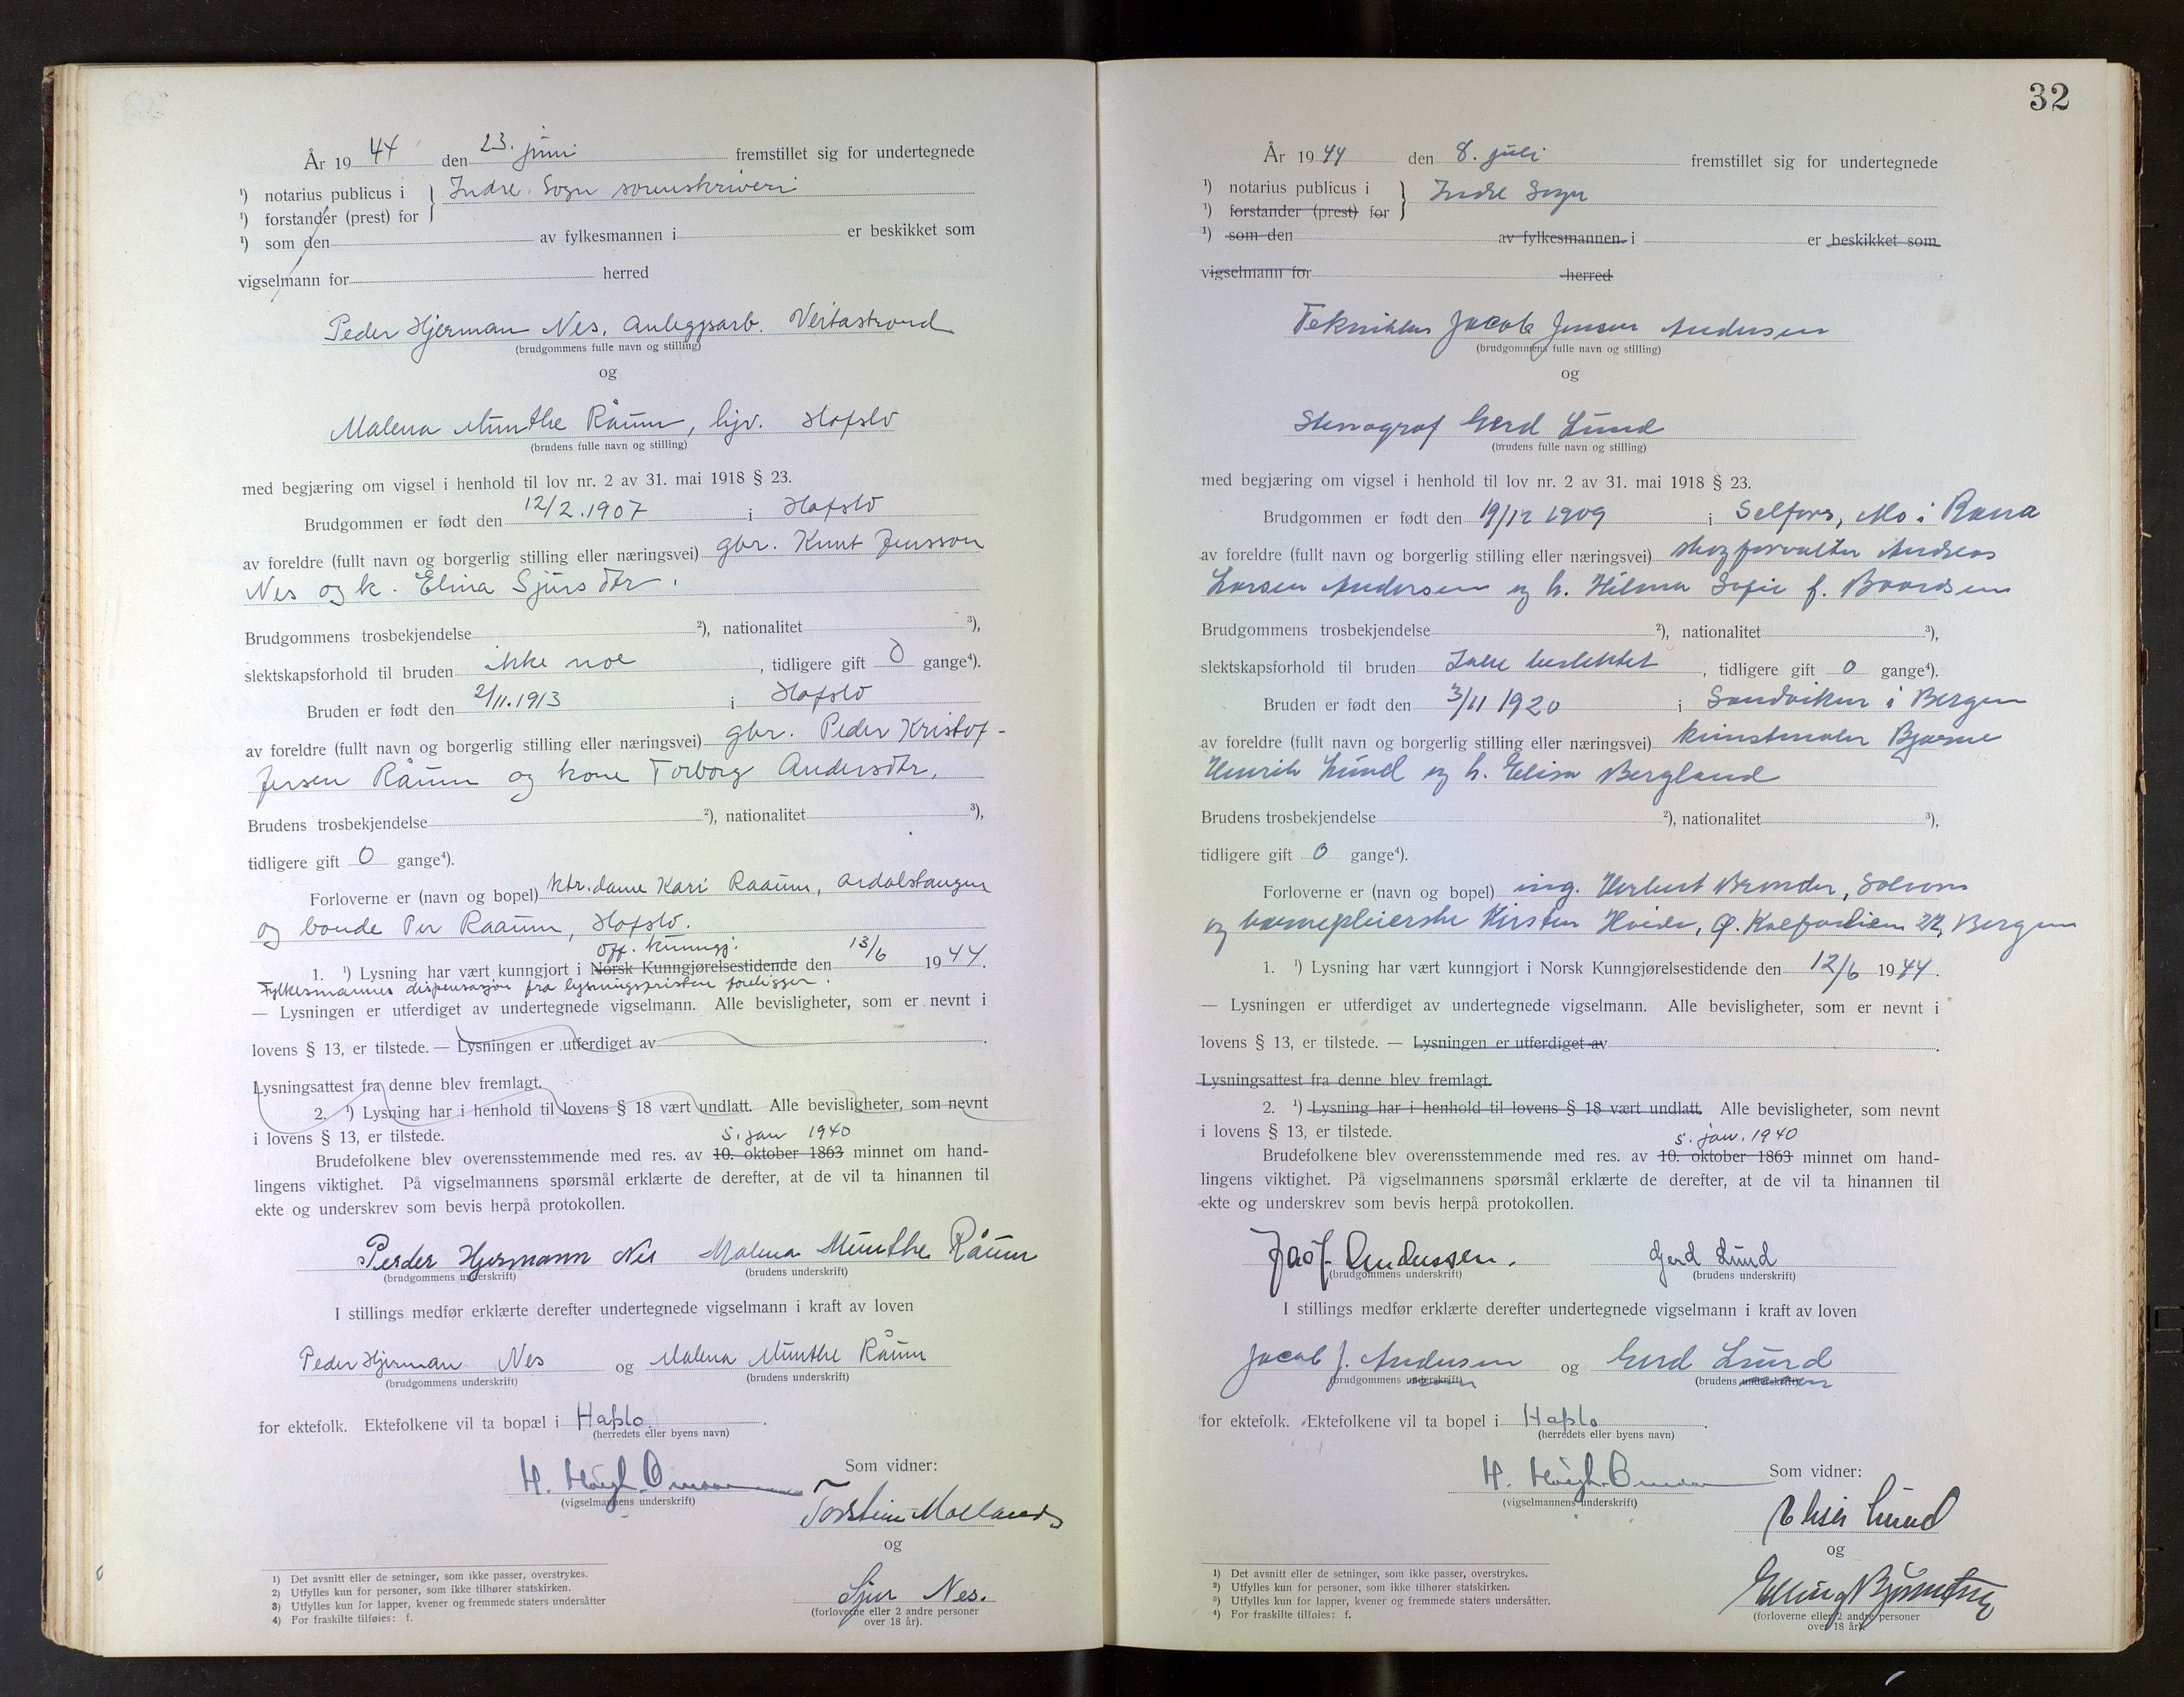 År 19 44 den 23. juni fremstillet sig for undertegnede
¹) notarius publicus i } Indre Sogn sorenskriveri
¹) forstander (prest) for
¹) som den av fylkesmannen i er beskikket som
vigselmann for herred
Peder Hjerman Nes, Anleggsarb. Veitastrond
(brudgommens fulle navn og stilling)
og
Malena Munthe Råum, hjv. Hafslo
(brudens fulle navn og stilling)
med begjæring om vigsel i henhold til lov nr. 2 av 31. mai 1918 § 23.
Brudgommen er født den 12/2.1907 i Hafslo
av foreldre (fullt navn og borgerlig stilling eller næringsvei) gbr. Knut Jensson
Nes og k. Elina Sjursdtr.
Brudgommens trosbekjendelse ²), nationalitet ³),
slektskapsforhold til bruden ikke noe, tidligere gift 0 gange⁴).
Bruden er født den 2/11.1913 i Hafslo
av foreldre (fullt navn og borgerlig stilling eller næringsvei) gbr. Peder Kristof-
Jersen Råum og kone Torborg Andersdtr.
Brudens trosbekjendelse ²), nationalitet ³),
tidligere gift 0 gange⁴).
Forloverne er (navn og bopel) ktr.dame Kari Raaum, Ardalstangen
og bonde Per Raaum, Hafslo.
off. kunngj.
1. ¹) Lysning har vært kunngjort i Norsk Kunngjørelsestidende den 13/6 1944.
Fylkesmannes dispensasjon fra lysningsfristen foreligger.
— Lysningen er utferdiget av undertegnede vigselmann. Alle bevisligheter, som er nevnt i
lovens § 13, er tilstede. — Lysningen er utferdiget av .
Lysningsattest fra denne blev fremlagt.
2. ¹) Lysning har i henhold til lovens § 18 vært undlatt. Alle bevisligheter, som nevnt
i lovens § 13, er tilstede.
5. jan 1940
Brudefolkene blev overensstemmende med res. av 10. oktober 1863 minnet om hand-
lingens viktighet. På vigselmannens spørsmål erklærte de derefter, at de vil ta hinannen til
ekte og underskrev som bevis herpå protokollen.
Perder Hjermann Nes Malena Munthe Råum
(brudgommens underskrift) (brudens underskrift)
I stillings medfør erklærte derefter undertegnede vigselmann i kraft av loven
Peder Hjerman Nes og Malena Munthe Råum
(brudgommens underskrift) (brudens underskrift)
for ektefolk. Ektefolkene vil ta bopæl i Hafslo.
(herredets eller byens navn)
H. Høgh
(vigselmannens underskrift)
Som vidner:
Torstein Molland
og
Sjur Nes.
(forloverne eller 2 andre personer
over 18 år).
1) Det avsnitt eller de setninger, som ikke passer, overstrykes.
2) Utfylles kun for personer, som ikke tilhører statskirken.
3) Utfylles kun for lapper, kvener og fremmede staters undersåtter
4) For fraskilte tilføies: f.
32
År 1944 den 8. juli fremstillet sig for undertegnede
¹) notarius publicus i } Indre Sogn
¹) forstander (prest) for
¹) som den av fylkesmannen i er beskikket som
vigselmann for herred
Tekniker Jacob Jensen Andersen
(brudgommens fulle navn og stilling)
og
Stenograf Gerd Lund
(brudens fulle navn og stilling)
med begjæring om vigsel i henhold til lov nr. 2 av 31. mai 1918 § 23.
Brudgommen er født den 19/12 1909 i Selfors, Mo i Rana
av foreldre (fullt navn og borgerlig stilling eller næringsvei) skogforvalter Andreas
Larsen Andersen og h. Hilma Sofie f. Baardsen
Brudgommens trosbekjendelse ²), nationalitet ³),
slektskapsforhold til bruden Ikke beslektet, tidligere gift 0 gange⁴).
Bruden er født den 3/11 1920 i Sandviken i Bergen
av foreldre (fullt navn og borgerlig stilling eller næringsvei) kunstmaler Bjarne
Henrik Lund og h. Elisa Bergland
Brudens trosbekjendelse ²), nationalitet ³),
tidligere gift 0 gange⁴).
Forloverne er (navn og bopel) ing. Herbert Brender, Solvorn
og barnepleierske Kirsten Hvide, Ø. Kalfarlien 22, Bergen
1. ¹) Lysning har vært kunngjort i Norsk Kunngjørelsestidende den 12/6 1944.
— Lysningen er utferdiget av undertegnede vigselmann. Alle bevisligheter, som er nevnt i
lovens § 13, er tilstede. — Lysningen er utferdiget av .
Lysningsattest fra denne blev fremlagt.
2. ¹) Lysning har i henhold til lovens § 18 vært undlatt. Alle bevisligheter, som nevnt
i lovens § 13, er tilstede.
5. jan. 1940
Brudefolkene blev overensstemmende med res. av 10. oktober 1863 minnet om hand-
lingens viktighet. På vigselmannens spørsmål erklærte de derefter, at de vil ta hinannen til
ekte og underskrev som bevis herpå protokollen.
Jac J. Anderssen. Gerd Lund
(brudgommens underskrift) (brudens underskrift)
I stillings medfør erklærte derefter undertegnede vigselmann i kraft av loven
Jacob J. Andersen og Gerd Lund
(brudgommens underskrift) (brudens underskrift)
for ektefolk. Ektefolkene vil ta bopel i Hafslo.
(herredets eller byens navn)
H. Høgh
(vigselmannens underskrift)
Som vidner:
Lund
og
(forloverne eller 2 andre personer
over 18 år).
1) Det avsnitt eller de setninger, som ikke passer, overstrykes.
²) Utfylles kun for personer, som ikke tilhører statskirken.
³) Utfylles kun for lapper, kvener og fremmede staters undersåtter.
⁴) For fraskilte tilføies: f.